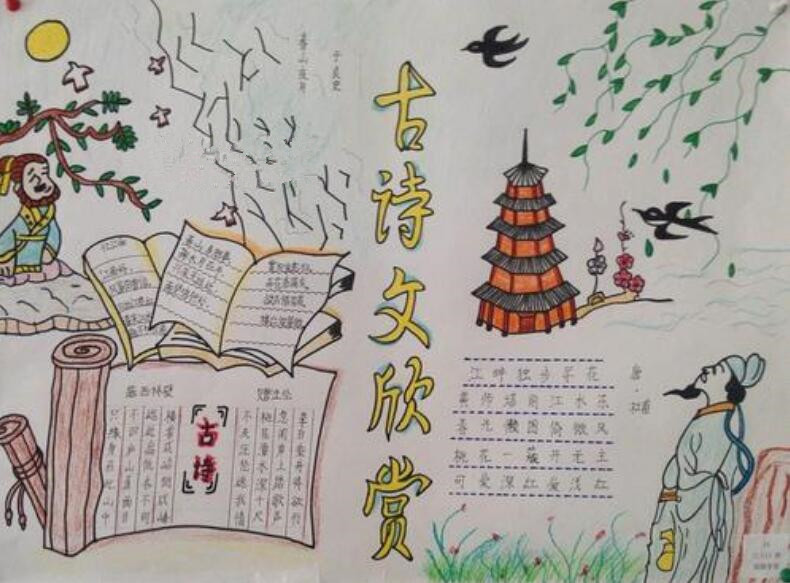 古诗文欣赏
春山夜月
于良史
春山多胜事
掬水月在手
兴来无远近
南望鸣钟处
弄花香满衣
江畔独步寻花
唐·杜甫
黄师塔前江水东
春光懒困倚微风
桃花一簇开无主
可爱深红爱浅红
赠汪伦
李白乘舟将欲行
忽闻岸上踏歌声
桃花潭水深千尺
不及汪伦送我情
古诗
题西林壁
横看成岭侧成峰
远近高低各不同
不识庐山真面目
只缘身在此山中